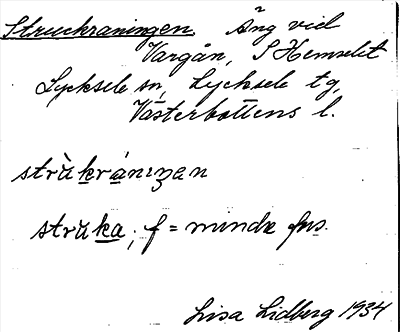 Struckraningen. Äng vid
Vargån, S Hemselet
Lycksele sn, Lycksele tg,
Västerbottens l.
strùkráninʒen
strùka, f = mindre fns.
Lisa Lidberg 1934